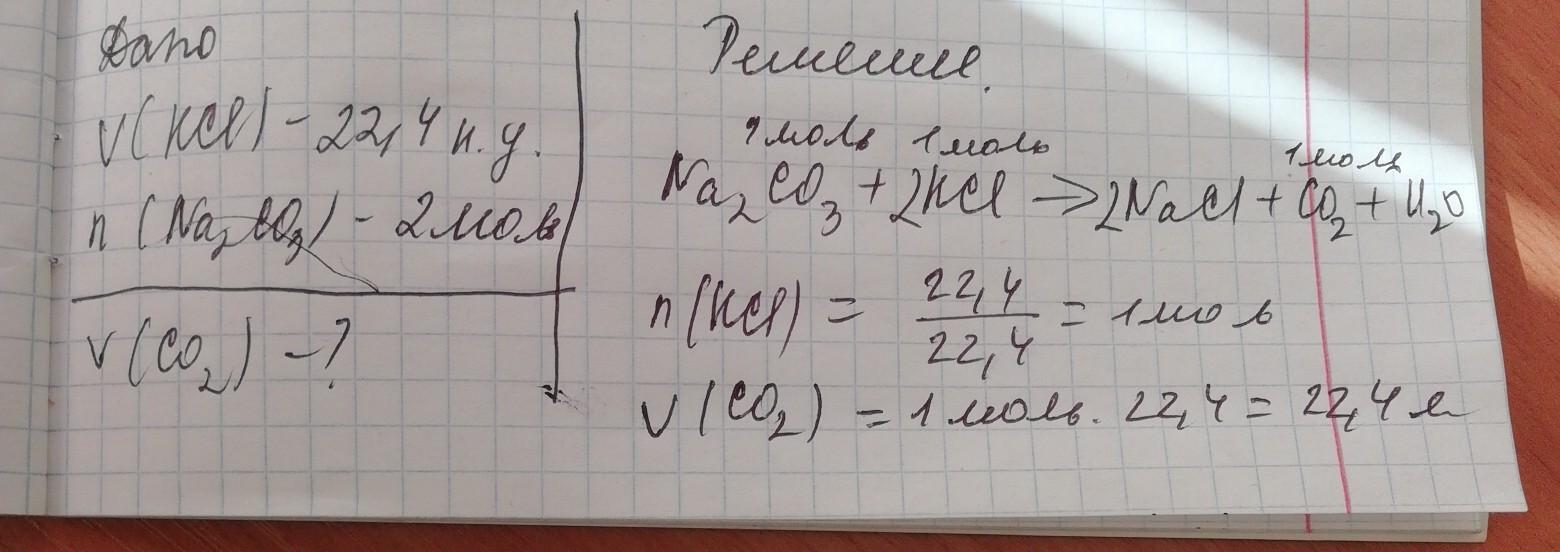 Дано
V(HCl) - 22,4 н.у.
n (Na2CO3) - 2 моль
V(CO2) - ?
Решение.
1 моль 1 моль 1 моль
Na2CO3 + 2HCl → 2NaCl + CO2 + H2O
n(HCl) = 22,4 / 22,4 = 1 моль
V(CO2) = 1 моль · 22,4 = 22,4 л